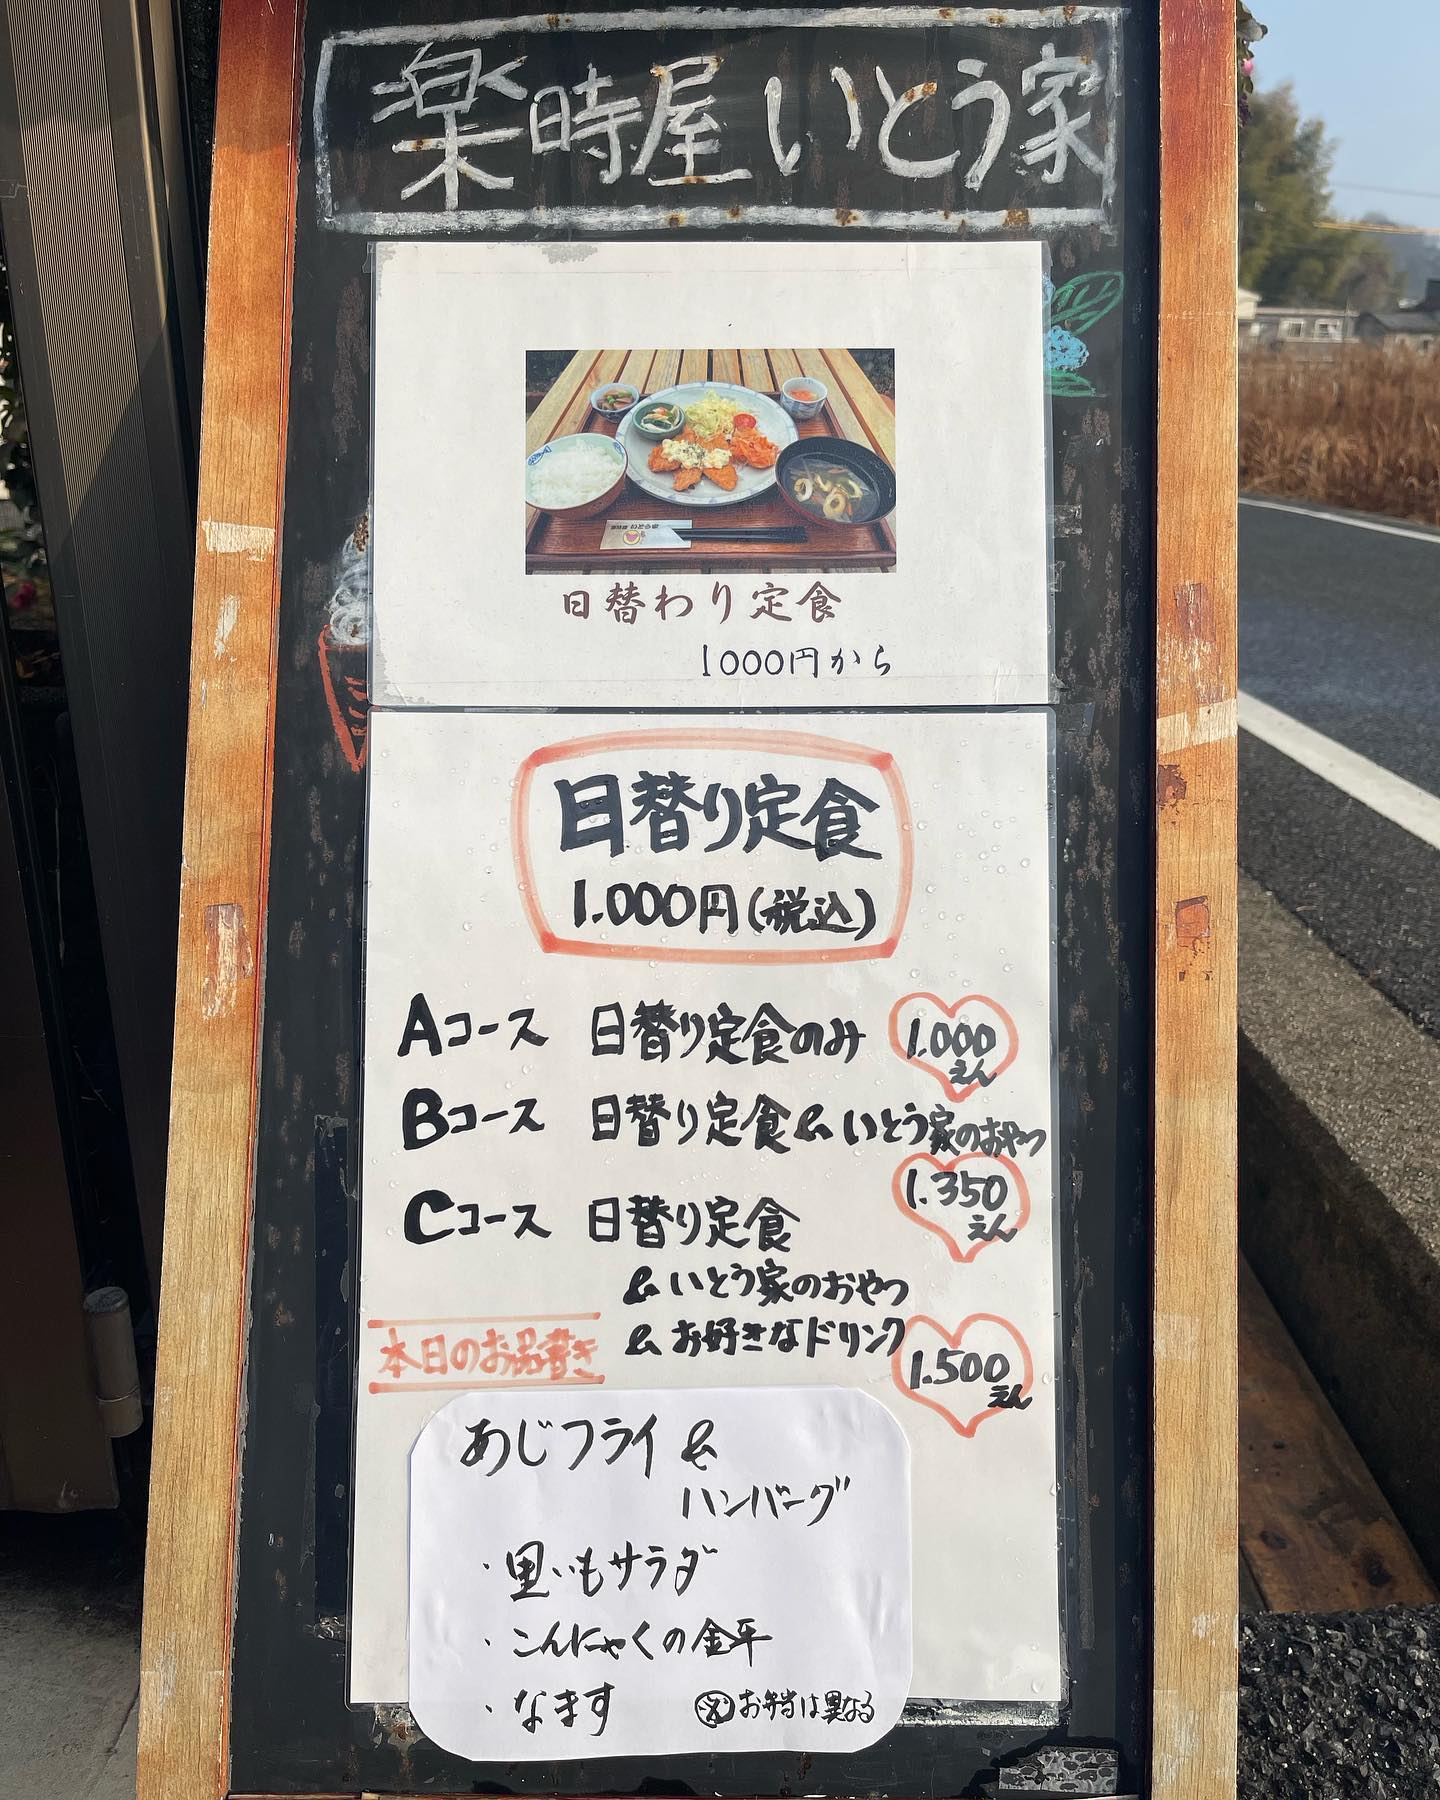 楽時屋いとう家
日替わり定食
1000円から
日替り定食
1.000円(税込)
Aコース 日替り定食のみ 1.000えん
Bコース 日替り定食&いとう家のおやつ
1.350えん
Cコース 日替り定食
&いとう家のおやつ
&お好きなドリンク
1.500えん
本日のお品書き
あじフライ&
ハンバーグ
・里いもサラダ
・こんにゃくの金平
・なます
お弁当は異なる